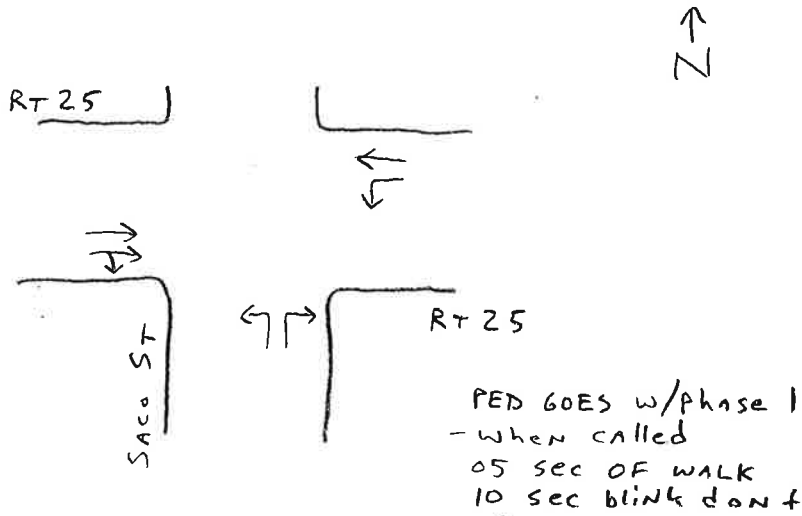 N
RT 25
SACO ST
RT 25
PED GOES w/phase 1
- when called
05 sec OF WALK
10 sec blink dont